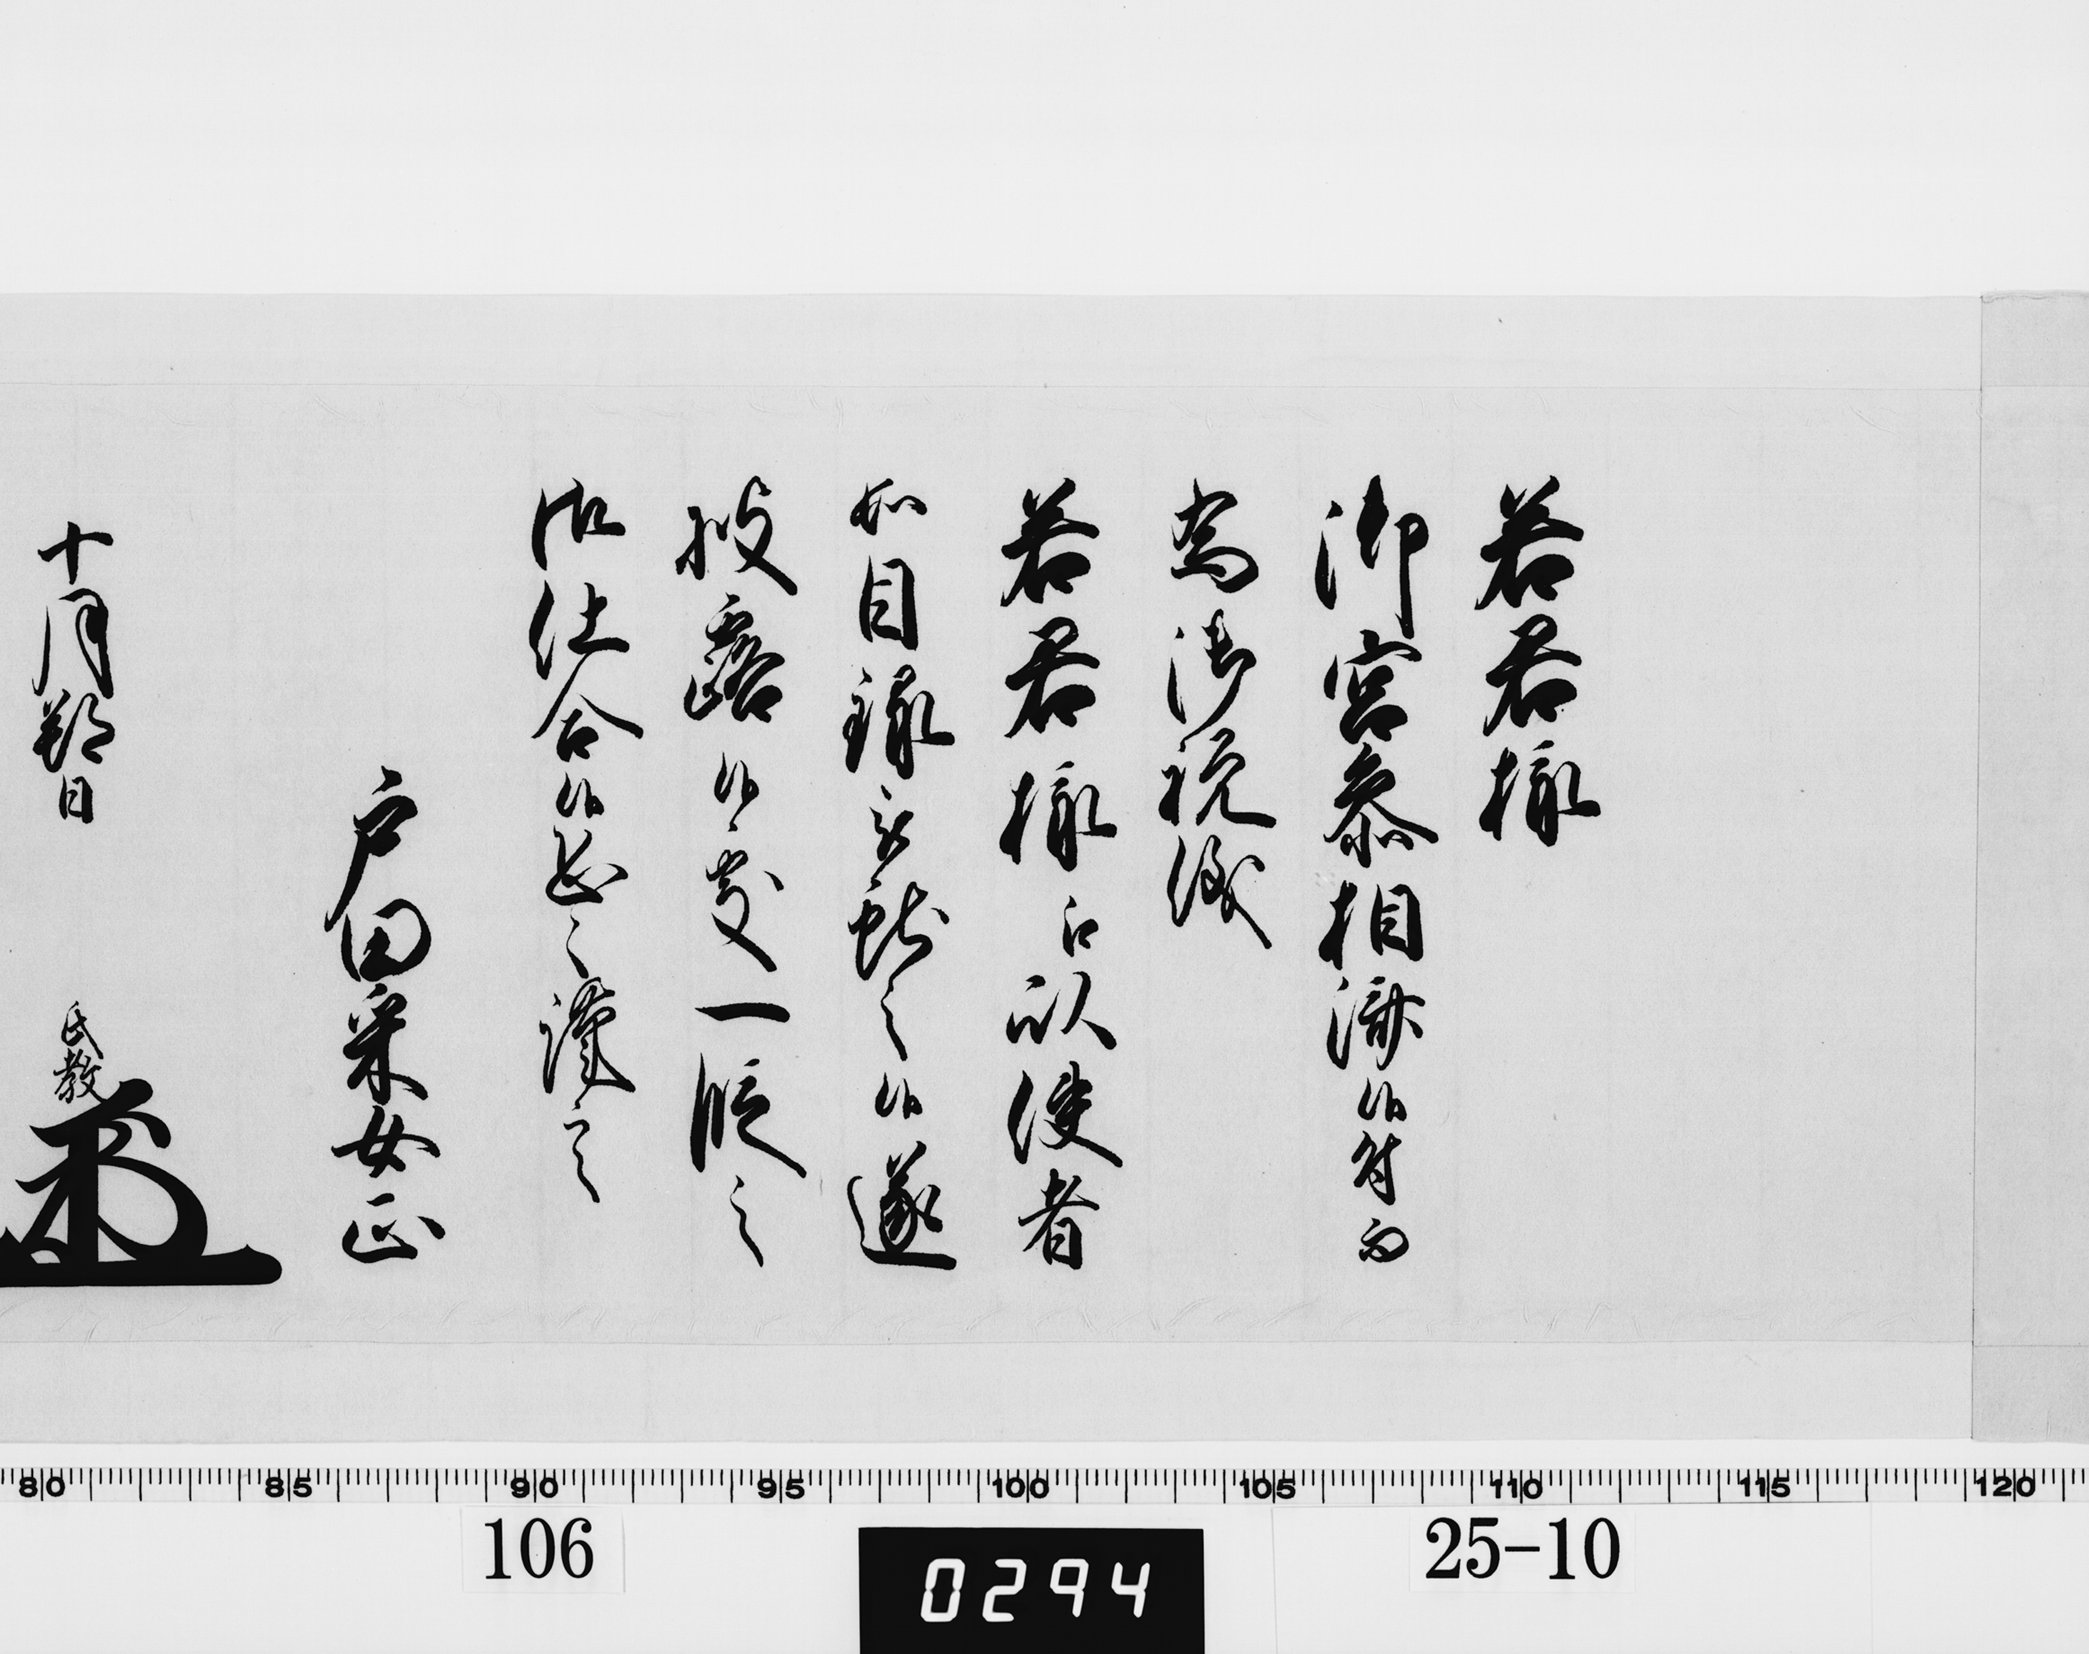 若君様
御宮参相済候付而
為御祝儀
若君様江以使者
如目録被献之候遂
披露候處一段之
御仕合候恐々謹言
戸田采女正
十月朔日
氏教
80 85 90 95 100 105 110 115 120
106
0294
25-10